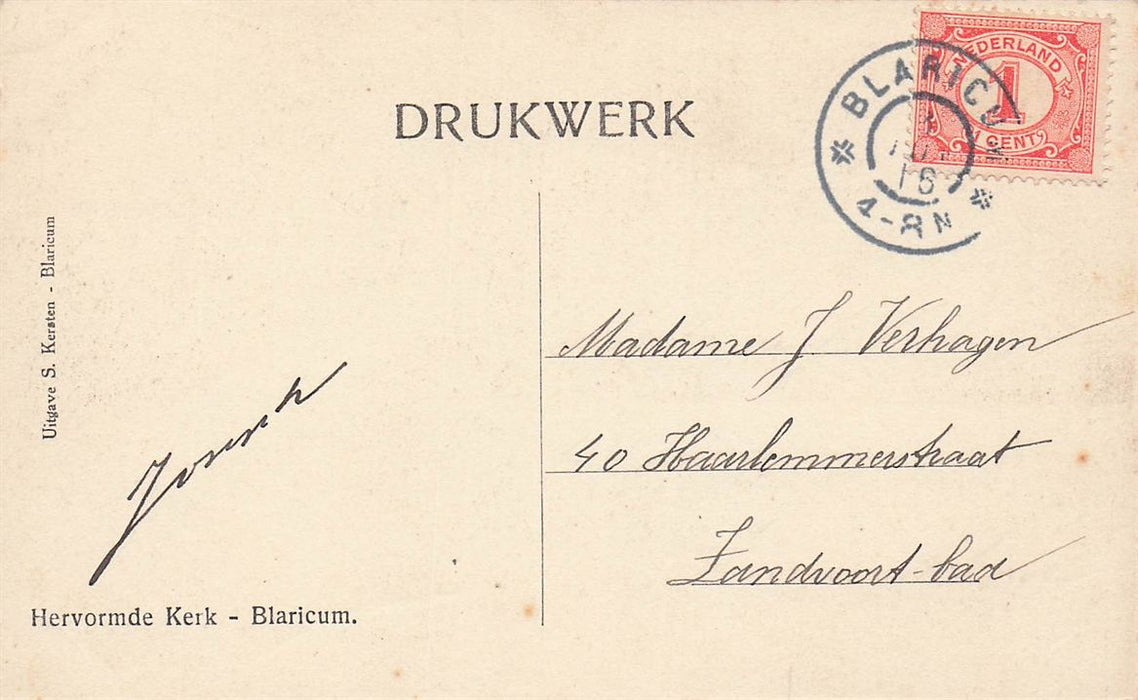 DRUKWERK
NEDERLAND
1
1 CENT
BLARICUM
16
4-8N
Uitgave S. Kersten - Blaricum
Madame J Verhagen
40 Haarlemmerstraat
Zandvoort-bad
Hervormde Kerk - Blaricum.